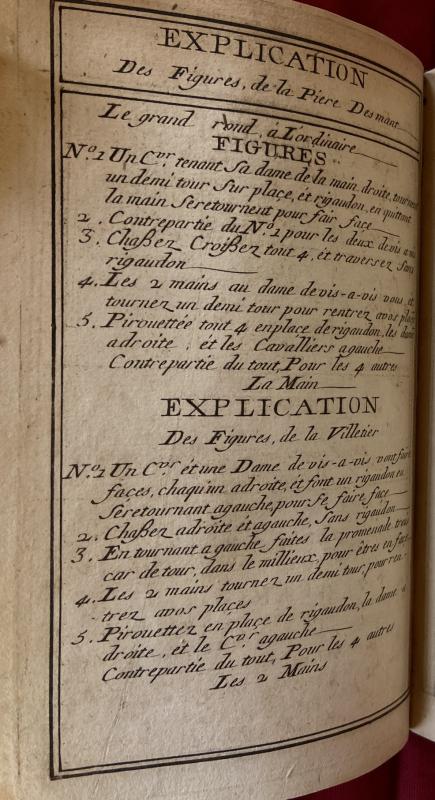 EXPLICATION
Des Figures, de la Piere Desmant
Le grand rond, à L'ordinaire
FIGURES
N.º1 Un C.vr, tenant sa dame de la main droite, tournent
un demi tour sur place, et rigaudon, en quittant
la main se retournent pour fair face
2. Contrepartie du N.º1 pour les deux de vis a vis
3. Chaßez Croißez tout 4, ét traversez sans
rigaudon
4. Les 2 mains au dame de vis-a-vis vous, et
tournez un demi tour pour rentrez avos places
5. Pirouettée tout 4 en place de rigaudon, les dames
a droite, ét les Cavalliers a gauche
Contrepartie du tout, Pour les 4 autres
La Main
EXPLICATION
Des Figures, de la Villetier
N.º1 Un C.vr ét une Dame de vis-a-vis vont faire
faces, chaqu'un adroite, ét font un rigaudon en
se retournant agauche, pour se faire face
2. Chaßez adroite et agauche, Sans rigaudon
3. En tournant a gauche faites la promenade trois
car de tour, dans le millieux, pour êtres en face
4. Les 2 mains tournez un demi tour, pour ren-
trez avos places
5. Pirouettez en place de rigaudon, la dame a
droite, et le C.vr agauche
Contrepartie du tout, Pour les 4 autres
Les 2 Mains